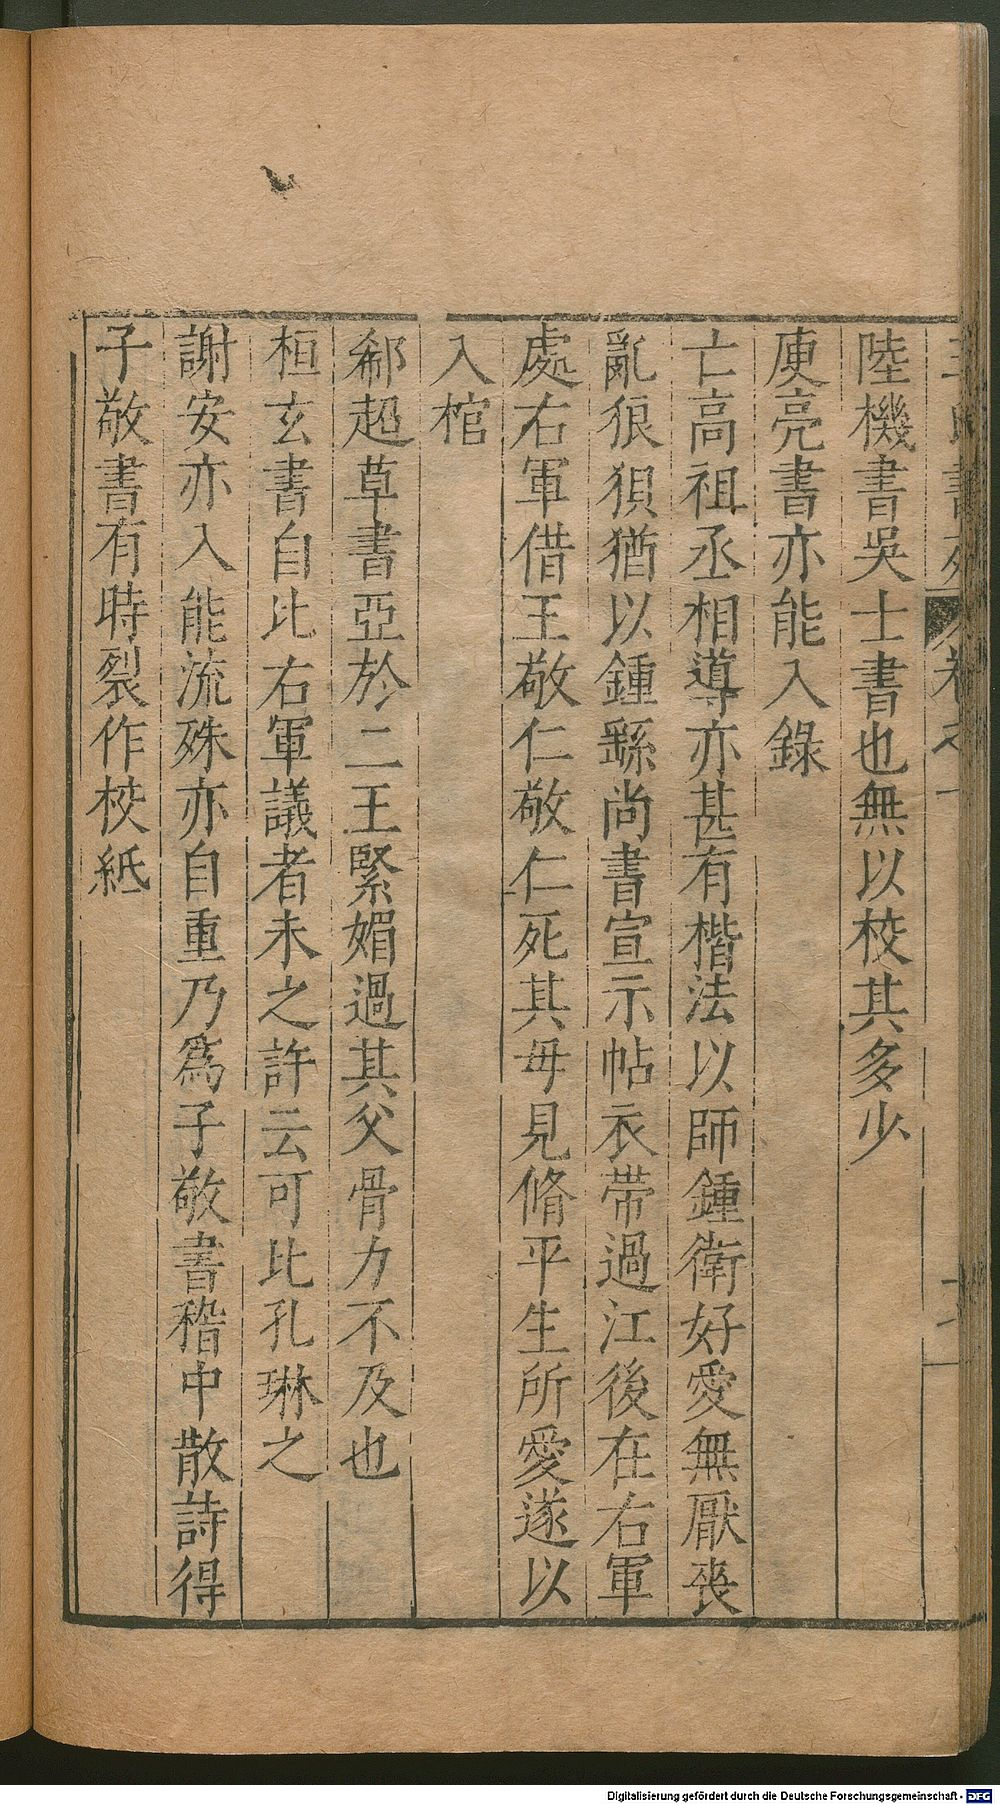 陸機書吳士書也無以校其多少
庾亮書亦能入錄
亡高祖丞相導亦甚有楷法以師鍾衛好愛無厭喪
亂狼狽猶以鍾繇尚書宣示帖衣帶過江後在右軍
處右軍借王敬仁敬仁死其母見脩平生所愛遂以
入棺
郗超草書亞於二王緊媚過其父骨力不及也
桓玄書自比右軍議者未之許云可比孔琳之
謝安亦入能流殊亦自重乃為子敬書嵇中散詩得
子敬書有時裂作校紙
Digitalisierung gefördert durch die Deutsche Forschungsgemeinschaft - DFG